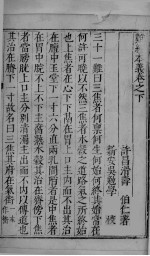 難經本義卷之下
許昌滑壽 伯仁著
新安吳勉學 校
三十一難曰三焦者何稟何生何始何終其治常在
何許可曉以不然三焦者水穀之道路氣之所終始
也上焦者在心下下膈在胃上口主內而不出其治
在膻中玉堂下一寸六分直兩乳間陷者是中焦者
在胃中脘不上不下主腐熟水穀其治在齊傍下焦
者當膀胱上口主分別清濁主出而不內以傳道也
其治在臍下一寸故名曰三焦其府在氣街一本作衝